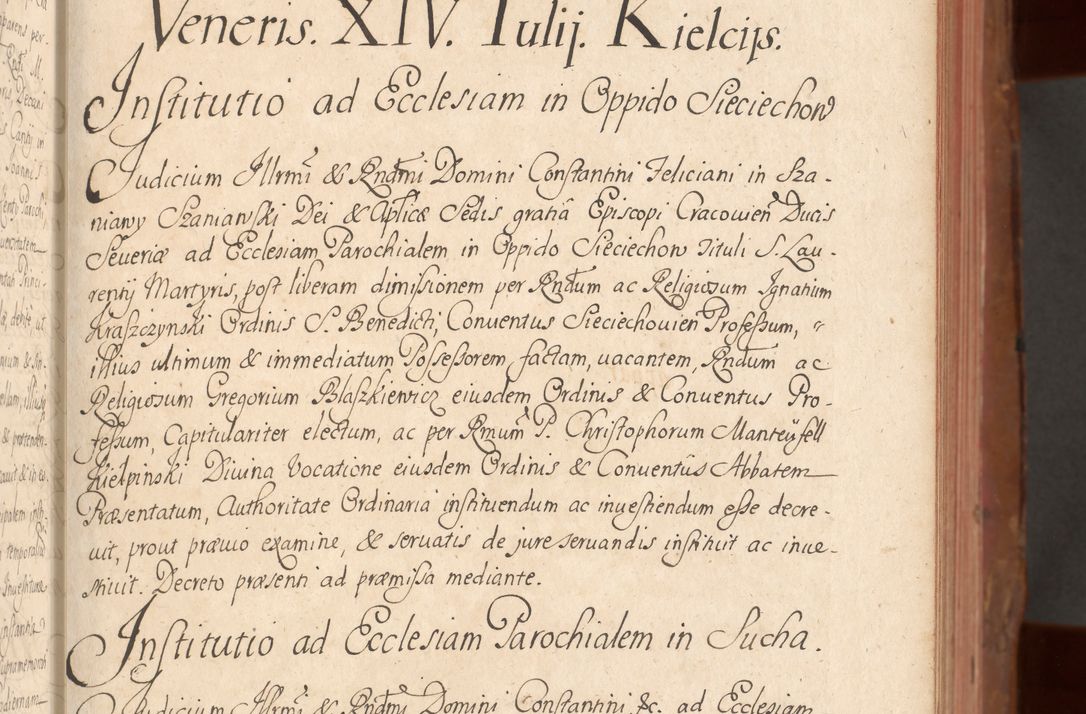 Veneris. XIV. Iulij. Kielcijs.
Institutio ad Ecclesiam in Oppido Sieciechow
Judicium Illrmi & Rndmi Domini Constantini Feliciani in Sza-
niawy Szaniawski Dei & Aplicæ Sedis gratiâ Episcopi Cracovien Ducis
Severiæ ad Ecclesiam Parochialem in Oppido Sieciechow Tituli S. Lau-
rentij Martyris, post liberam dimissionem per Rndum ac Religiosum Ignatium
Kraszczynski Ordinis S. Benedicti, Conventus Sieciechovien Professum,
illius ultimum & immediatum Possessorem factam, vacantem, Rndum ac
Religiosum Gregorium Blaszkiewicz eiusdem Ordinis & Conventus Pro-
fessum, Capitulariter electum, ac per Rmum P. Christophorum Manteyfell
Kiełpinski Divina Vocatione eiusdem Ordinis & Conventûs Abbatem
Præsentatum, Authoritate Ordinaria instituendum ac investiendum esse decre-
vit, prout prævio examine, & servatis de jure servandis instituit ac inve-
stiuit. Decreto præsenti ad præmissa mediante.
Institutio ad Ecclesiam Parochialem in Sucha.
Judicium Illrmi & Rndmi Domini Constantini &c. ad Ecclesiam